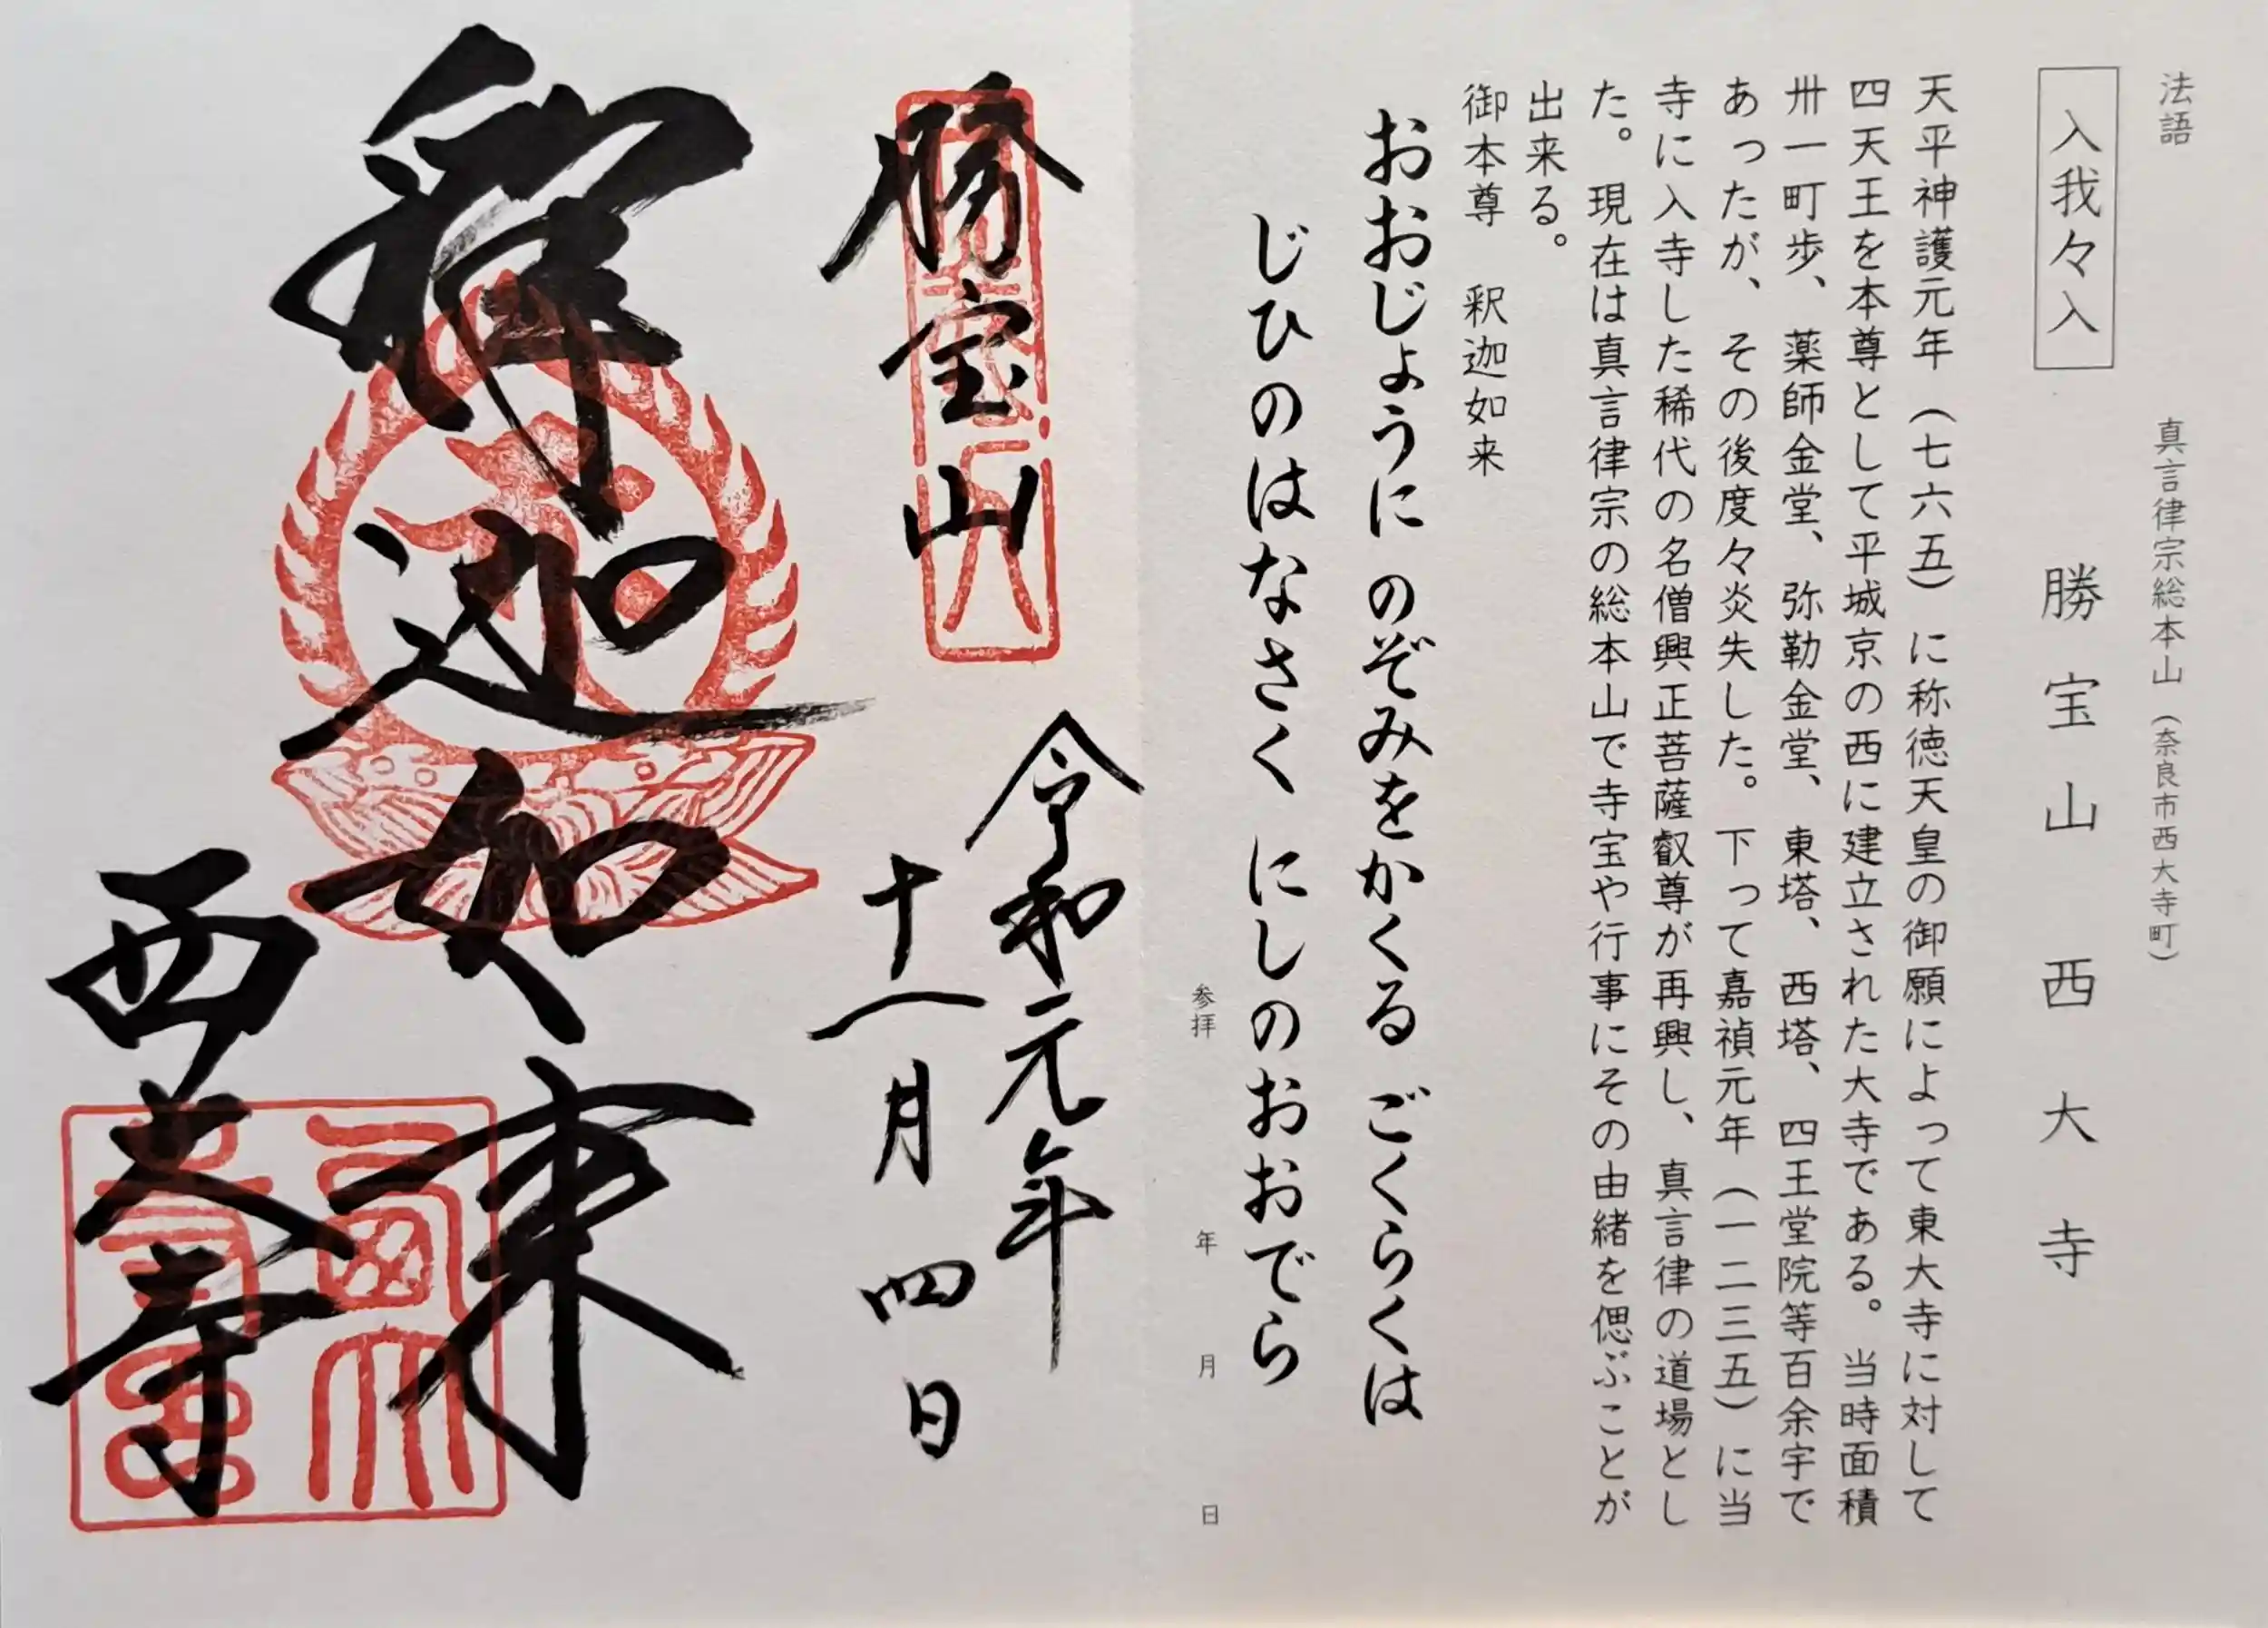 法語
入我々入
真言律宗総本山(奈良市西大寺町)
勝宝山 西大寺
天平神護元年(七六五)に称徳天皇の御願によって東大寺に対して
四天王を本尊として平城京の西に建立された大寺である。当時面積
卅一町歩、薬師金堂、弥勒金堂、東塔、西塔、四王堂院等百余宇で
あったが、その後度々炎失した。下って嘉禎元年(一二三五)に当
寺に入寺した稀代の名僧興正菩薩叡尊が再興し、真言律の道場とし
た。現在は真言律宗の総本山で寺宝や行事にその由緒を偲ぶことが
出来る。
御本尊 釈迦如来
おおじょうに のぞみをかくる ごくらくは
じひのはなさく にしのおおでら
参拝 年 月 日
勝宝山
令和元年
十一月四日
釋迦如来
西大寺